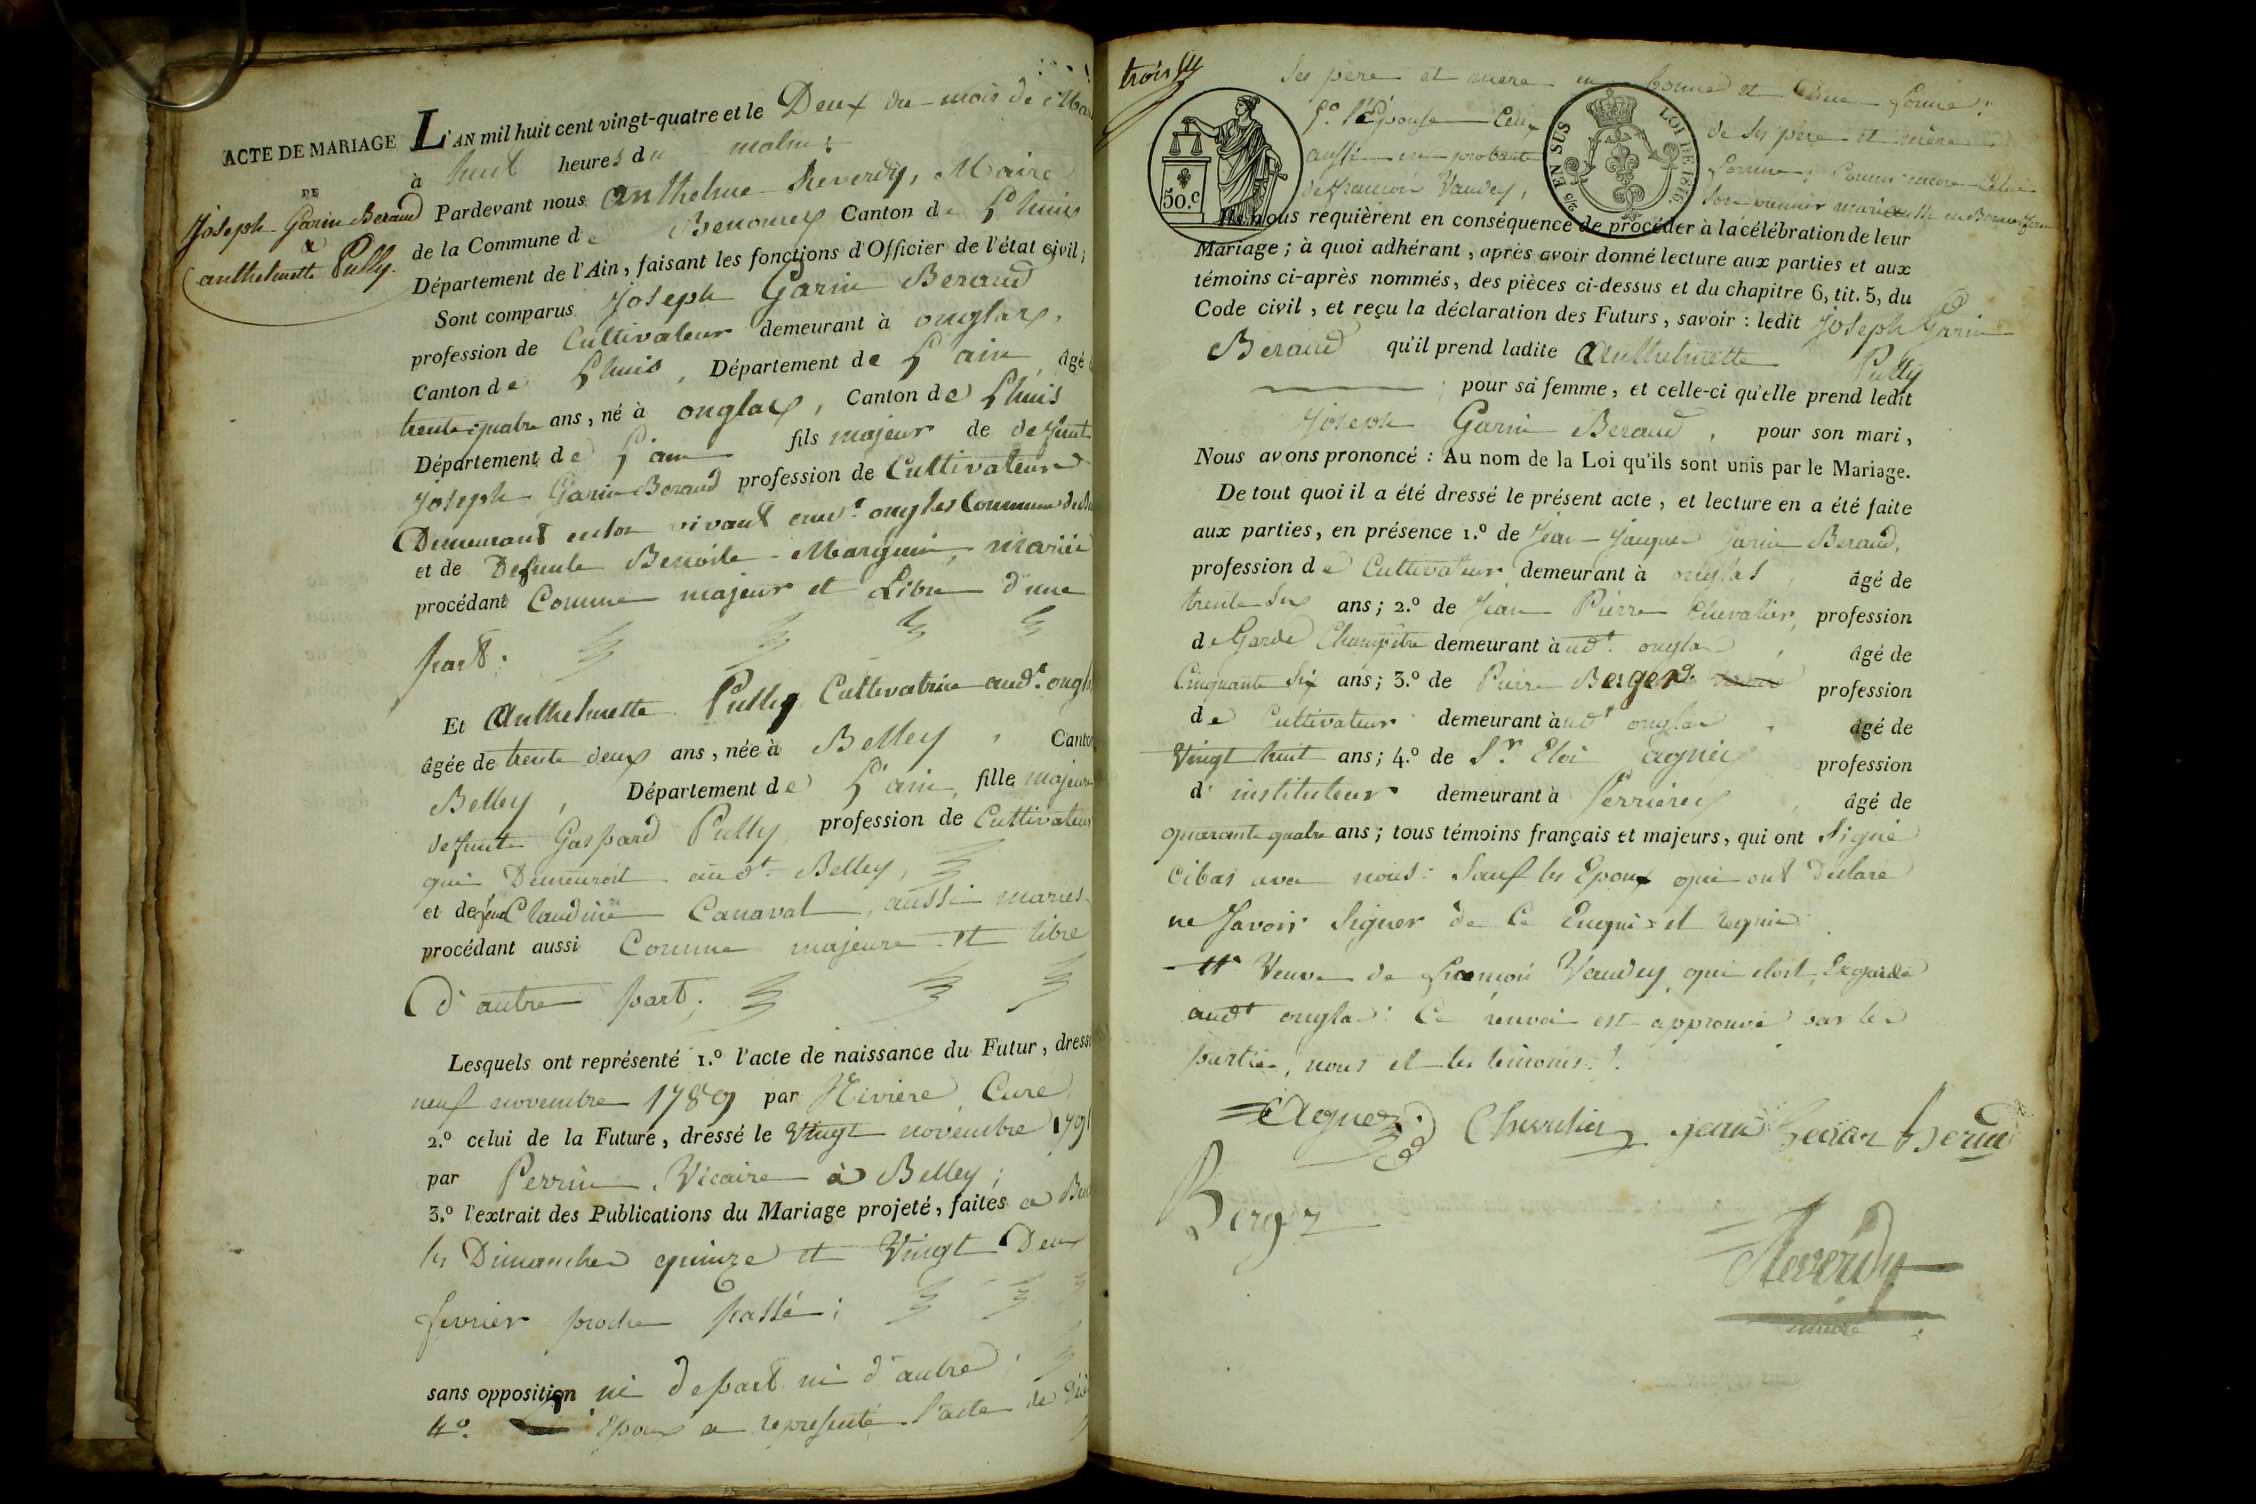 ACTE DE MARIAGE
DE
Joseph Garin Beraud
&
anthelmette Pully.
L'AN mil huit cent vingt-quatre et le Deux du mois de Mars
à huit heures du matin;
Pardevant nous anthelme Reverdy, Maire
de la Commune de Benonces Canton de Lhuis
Département de l'Ain, faisant les fonctions d'Officier de l'état civil;
Sont comparus Joseph Garin Beraud
profession de Cultivateur demeurant à onglas,
Canton de Lhuis, Département de L'ain, âgé
trente quatre ans, né à onglas, Canton de Lhuis
Département de L'ain fils majeur de defunt
Joseph Garin Beraud profession de Cultivateur
Demeurant en son vivant aud.t onglas Commune
et de Defunte Benoite Marguin, mariés
procédant Comme majeur et Libre d'une
part.
Et Anthelmette Pully Cultivatrice aud.t ongla
âgée de trente deux ans, née à Belley, Canton
Belley, Département de L'ain, fille majeure
defunt Gaspard Pully profession de Cultivateur
qui Demeuroit aud.t Belley,
et de feue Claudine Canaval, aussi mariés
procédant aussi Comme majeure et libre
d'autre part;
Lesquels ont représenté 1.º l'acte de naissance du Futur, dressé
neuf novembre 1789 par Rivière Curé
2.º celui de la Future, dressé le Vingt novembre 1791
par Perrin Vicaire à Belley;
3.º l'extrait des Publications du Mariage projeté, faites a
les Dimanches quinze et Vingt Deux
fevrier proche passé;
sans opposition ni de part ni d'autre
4.º Epoux a representé l'acte de
trois
ses père et mère en bonne et Due forme;
5.º l'Epouse Celui de ses père et mère
aussi en probante forme, Comme encore Celui
de françois Vaudey, son premier mari en Bonne forme
50.c
2/5 EN SUS
LOI DE 1816.
Ils nous requièrent en conséquence de procéder à la célébration de leur
Mariage; à quoi adhérant, après avoir donné lecture aux parties et aux
témoins ci-après nommés, des pièces ci-dessus et du chapitre 6, tit. 5, du
Code civil, et reçu la déclaration des Futurs, savoir: ledit Joseph Garin
Beraud qu'il prend ladite Anthelmette Pully
; pour sa femme, et celle-ci qu'elle prend ledit
Joseph Garin Beraud, pour son mari,
Nous avons prononcé: Au nom de la Loi qu'ils sont unis par le Mariage.
De tout quoi il a été dressé le présent acte, et lecture en a été faite
aux parties, en présence 1.º de Jean Jacques Garin Beraud,
profession de Cultivateur demeurant à onglas, âgé de
trente six ans; 2.º de Jean Pierre Chevalier, profession
de Garde Champêtre demeurant à ud.t ongla, âgé de
Cinquante Six ans; 3.º de Pierre Berger profession
de Cultivateur demeurant à ud.t onglas, âgé de
Vingt huit ans; 4.º de S.r Eloi agnés profession
d'instituteur demeurant à Serrières, âgé de
quarante quatre ans; tous témoins français et majeurs, qui ont Signé
cibas avec nous: Sauf les Epoux qui ont Déclaré
ne Savoir Signer de Ce Enquis et requis
Veuve de françois Vaudey qui étoit, Exgarde
aud.t ongla: Ce renvoi est approuvé par les
parties, nous et les témoins.
Agnez Chevalier jean
Berger
Reverdy
maire